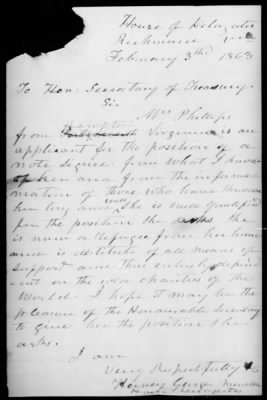 House of Delegates
Richmond Va
February 3rd 1863
To Hon: Secretary of Treasury.
Sir,
Mrs Phillips
Hampton
from Virginia is an
applicant for the position of a
note signer. from what I know
of her and from the informa-
mation of those who have known
her long and well she is well qualified
for the position she asks she
is now a refugee from her home
and is destitute of all means of
support and thus entirely depend-
ent on the cold charities of the
World. I hope it may be the
pleasure of the Honourable Secretary
to give her the position she
asks.
I am
Very Respectfully &c
House Delegates